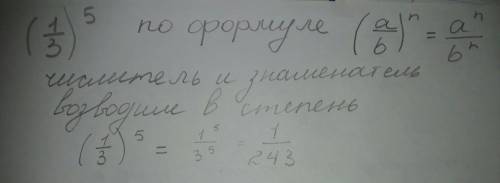 (1/3)^5 по формуле (a/b)^n = a^n/b^n
числитель и знаменатель
возводим в степень
(1/3)^5 = 1^5/3^5 = 1/243